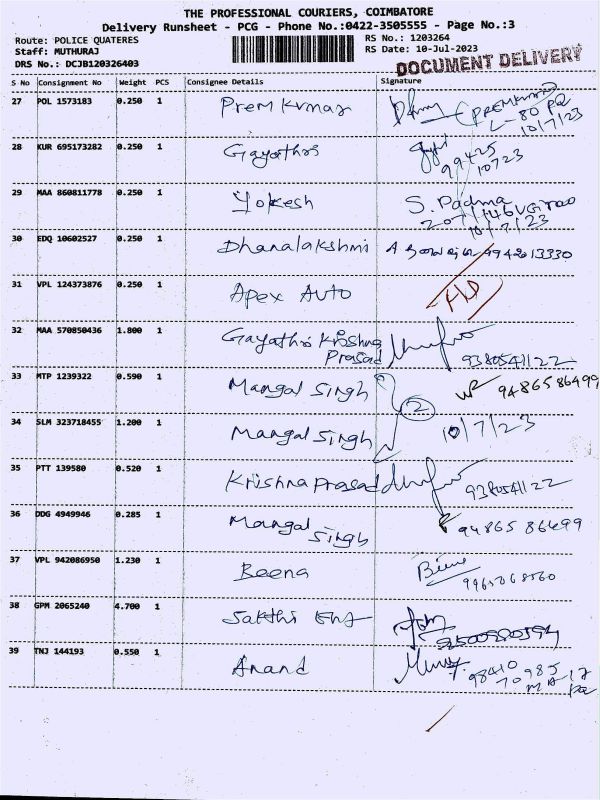 THE PROFESSIONAL COURIERS, COIMBATORE
Delivery Runsheet - PCG - Phone No.:0422-3505555 - Page No.:3
Route: POLICE QUATERES
RS No.: 1203264
Staff: MUTHURAJ
RS Date: 10-Jul-2023
DRS No.: DCJB120326403
DOCUMENT DELIVERY
S No Consignment No Weight PCS Consignee Details Signature
27 POL 1573183 0.250 1 Prem Kumar (PREMKUMAR
L-80 PQ
10/7/23
28 KUR 695173282 0.250 1 Gayathri
99425
10723
29 MAA 860811778 0.250 1 Yokesh S. Padma
207/146 VG Rao
10/7/23
30 EDQ 10602527 0.250 1 Dhanalakshmi 9942013330
31 VPL 124373876 0.250 1 Apex Auto
32 MAA 570850436 1.800 1 Gayathri Krishna
Prasad 9380541122
33 MTP 1239322 0.590 1 Mangal Singh 9486586499
2
34 SLM 323718455 1.200 1 Mangal Singh 10/7/23
35 PTT 139580 0.520 1 Krishna Prasad 9380541122
36 DDG 4949946 0.285 1 Mangal
Singh 94865 86499
37 VPL 942086950 1.230 1 Beena
38 GPM 2065240 4.700 1 Sakthi
39 TNJ 144193 0.550 1 Anand 98410
70985